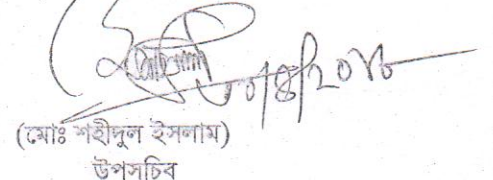 (মোঃ শহীদুল ইসলাম)
উপসচিব